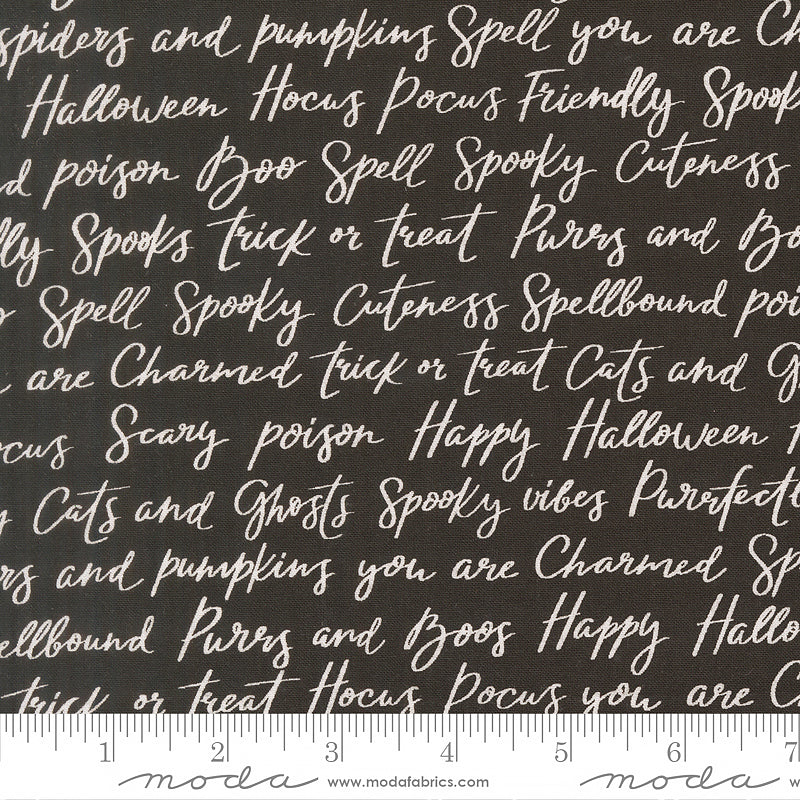 spiders and pumpkins Spell you are Ch
Halloween Hocus Pocus Friendly Spook
d poison Boo Spell Spooky Cuteness
lly Spooks trick or treat Purrs and Bo
o Spell Spooky Cuteness Spellbound poi
are Charmed trick or treat Cats and G
ocus Scary poison Happy Halloween
y Cats and Ghosts Spooky vibes Purrfectl
rs and pumpkins you are Charmed Sp
ellbound Purrs and Boos Happy Hallo
trick or treat Hocus Pocus you are C
1 2 3 4 5 6 7
moda www.modafabrics.com moda w